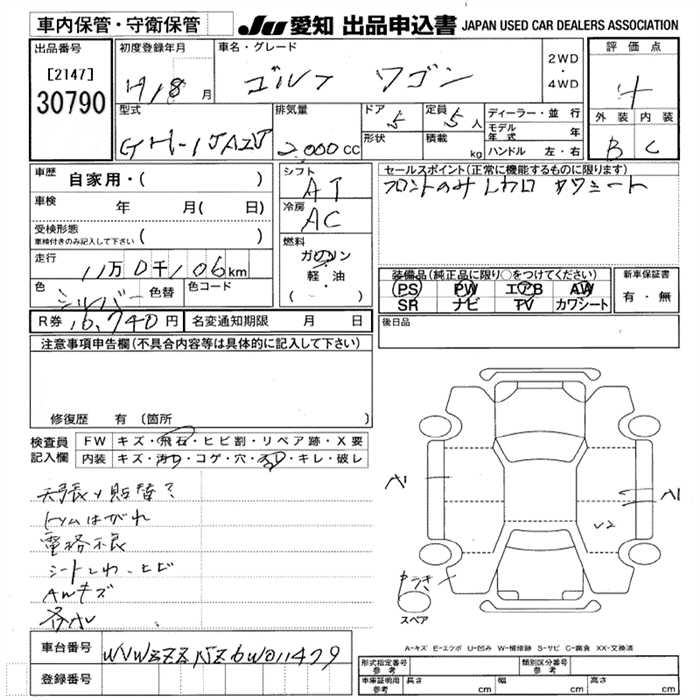 車内保管・守衛保管
JU 愛知 出品申込書 JAPAN USED CAR DEALERS ASSOCIATION
出品番号
[2147]
30790
初度登録年月
H18 月
車名・グレード
ゴルフ ワゴン
2WD
・
4WD
評価点
4
外装 内装
B C
型式
GH-1JAZJ
排気量
2,000 CC
ドア 5
定員 5 人
形状
積載 kg
ディーラー・並行
モデル年式 年
ハンドル 左・右
車歴
自家用・( )
車検 年 月( 日)
受検形態
車検付きのみ記入して下さい ( )
走行
11万0千106km
色 シルバー 色替 色コード
シフト
AT
冷房
AC
燃料
ガソリン
軽・油
( )
セールスポイント(正常に機能するものに限ります)
フロントのみ レカロ カワシート
装備品(純正品に限り○をつけてください)
PS PW エアB AW
SR ナビ TV カワシート
新車保証書
有・無
R券 16,740円 名変通知期限 月 日
後日品
注意事項申告欄(不具合内容等は具体的に記入して下さい)
修復歴 有 (箇所 )
検査員
記入欄
FW キズ・飛石・ヒビ割・リペア跡・X要
内装 キズ・汚れ・コゲ・穴・スレ・キレ・破レ
天張り貼替?
トリムはがれ
電格不良
シートしわ、ヒビ
AWキズ
A1
A1
U2
スペア
A-キズ E-エクボ U-凹み W-補修跡 S-サビ C-腐食 XX-交換済
車台番号 WVWZZZ1JZ6W011479
登録番号
形式指定番号 参考
類別区分番号 参考
車庫証明用 参考 長さ cm 幅 cm 高さ cm